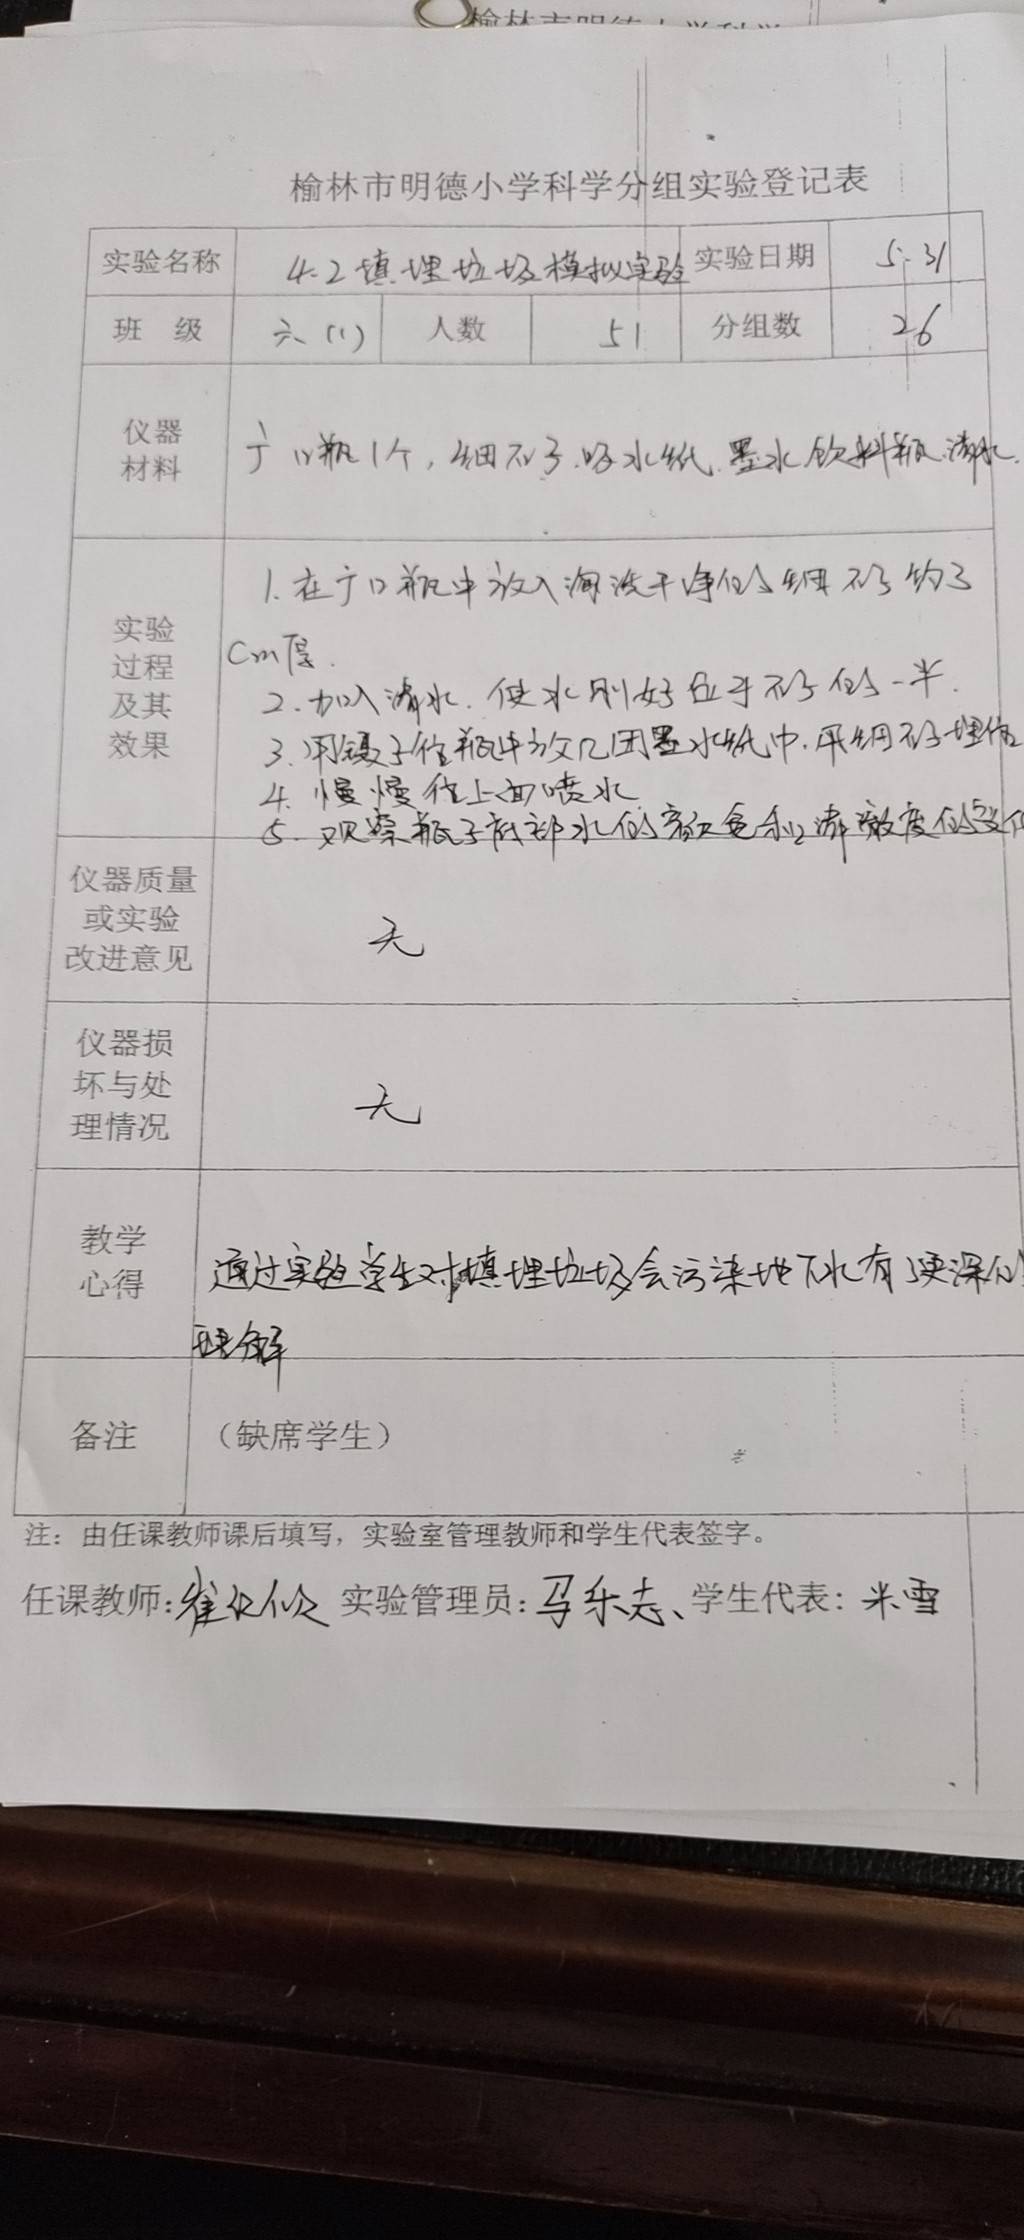 榆林市明德小学科学分组实验登记表
实验名称 4.2填埋垃圾模拟实验 实验日期 5.31
班 级 六(1) 人数 51 分组数 26
仪器
材料
广口瓶1个,细石子.吸水纸.墨水饮料瓶.清水.
实验
过程
及其
效果
1.在广口瓶中放入淘洗干净的细石子约3
cm厚.
2.加入清水.使水刚好位于石子的一半.
3.用镊子往瓶中放几团墨水纸巾.用细石子埋住
4.慢慢往上面喷水
5.观察瓶子底部水的颜色和清澈度的变化
仪器质量
或实验
改进意见
无
仪器损
坏与处
理情况
无
教学
心得
通过实验学生对填埋垃圾会污染地下水有了更深的
理解
备注 (缺席学生)
注:由任课教师课后填写,实验室管理教师和学生代表签字。
任课教师:崔 实验管理员:马乐志、学生代表:米雪